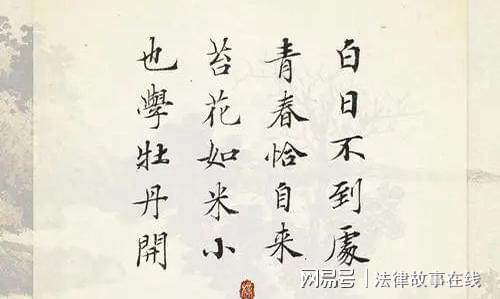 白日不到處
青春恰自来
苔花如米小
也學牡丹開
网易号 | 法律故事在线